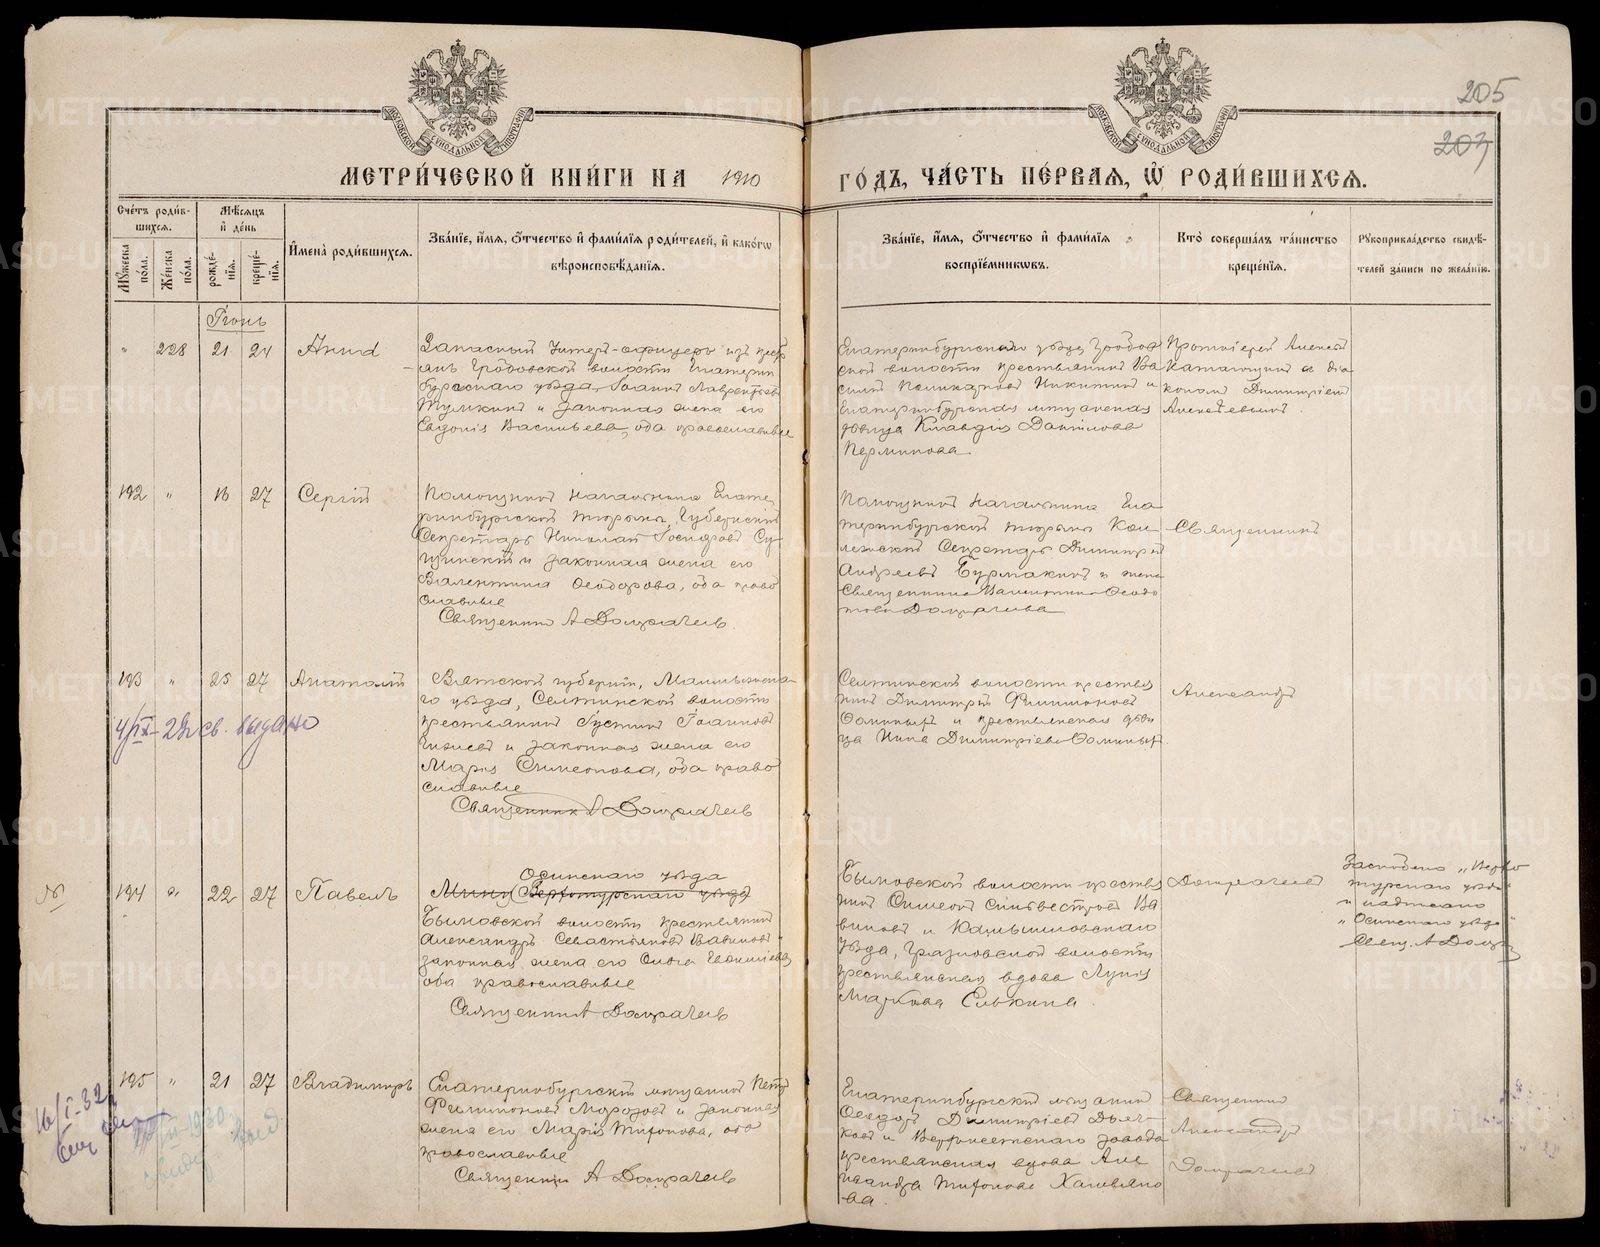 205
203
МОСКОВСКОЙ СѴНОДАЛЬНОЙ ТИПОГРАФІИ
МОСКОВСКОЙ СѴНОДАЛЬНОЙ ТИПОГРАФІИ
МЕТРИ́ЧЕСКОЙ КНИ́ГИ НА 1910
ГО́ДЪ, ЧА́СТЬ ПЕ́РВАЯ, Ѿ РОДИ́ВШИХСЯ.
Сче́тъ роди́в-
шихся.
Мѣ́сяцъ
и҆ де́нь
Мꙋ́жеска
по́ла.
Же́нска
по́ла.
рожде́-
нїя.
креще́-
нїя.
И҆мена̀ роди́вшихся.
Зва́нїе, и҆́мя, ѻ҆́тчество и҆ фами́лїя роди́телей, и҆ како́гѡ
вѣроисповѣ́данїя.
Зва́нїе, и҆́мя, ѻ҆́тчество и҆ фами́лїя
воспрїе́мникѡвъ.
Кто̀ соверша́лъ та́инство
креще́нїя.
Рꙋкоприкла́дство свидѣ́-
телей за́писи по жела́нїю.
Іюнь
" 228 21 24 Анна
Запасный унтеръ-офицеръ изъ крест
янъ Гробовской волости Екатерин
бургскаго уѣзда, Іоаннъ Лаврентьевъ
и законная жена его
Евдокія Васильева, оба православные
Екатеринбургскаго уѣзда Гробов
ской волости крестьянинъ Ва
силій Поликарповъ Никитинъ и
Екатеринбургская мѣщанская
дѣвица Клавдія Даніилова
Перминова
Протоіерей Алексій
съ діа
кономъ Димитріемъ
192 " 18 27 Сергій
Помощникъ начальника Екате
ринбургской тюрьмы, Губернскій
Секретарь Николай Іосифовъ Су
и законная жена его
Валентина Ѳеодорова, оба право
славные
Священникъ А Домрачевъ
Помощникъ начальника Ека
теринбургской тюрьмы Кол
лежскій Секретарь Димитрій
Андреевъ Бурмакинъ и жена
священника Валентина Ѳеодо
това Домрачева
Священникъ
193 " 25 27 Анатолій
4/IX-29 св. выдано
Вятской губерніи, Малмыжска
го уѣзда, Селтинской волости
крестьянинъ Густинъ Іоанновъ
и законная жена его
Марія Симеонова, оба право
славные
Священникъ А Домрачевъ
Селтинской волости крестья
нинъ Димитрій Филимоновъ
Ѳоминыхъ и крестьянская дѣви
ца Нина Димитріева Ѳоминыхъ.
Александръ
194 " 22 27 Павелъ
Осинскаго уѣзда
Верхотурскаго уѣзда
Бымовской волости крестьянинъ
Александръ Севастьяновъ Вавиловъ
законная жена его Ольга
оба православные
Священникъ А Домрачевъ
Бымовской волости крестья
нинъ Симеонъ Сильвестровъ Ва
виловъ и Камышловскаго
уѣзда, Грязновской волости
крестьянская вдова
Маркова Елькина.
Домрачевъ
"Верхо
турскаго уѣзда"
и надписано
"Осинскаго уѣзда"
Свящ. А Домр
195 " 21 27 Владиміръ
16/I-32
1930
Екатеринбургскій мѣщанинъ Петръ
Филимоновъ Морозовъ и законная
жена его Марія Тихонова, оба
православные
Священникъ А Домрачевъ
Екатеринбургскій мѣщанинъ
Ѳеодоръ Димитріевъ Дьяч-
ковъ и Верхисетскаго завода
крестьянская вдова Але
ксандра Тихонова
ва.
Священникъ
Александръ
Домрачевъ
METRIKI.GASO-URAL.RU